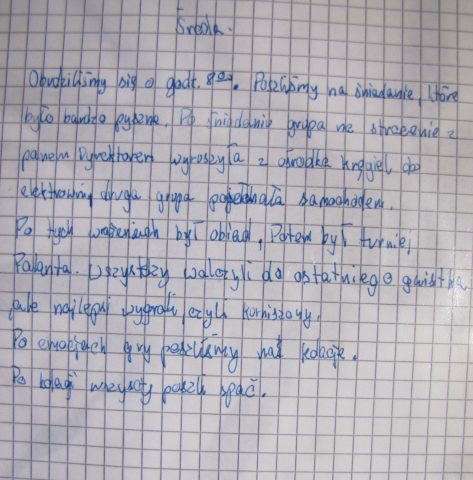 Środa.
Obudziliśmy się o godz. 8⁰⁰. Poszliśmy na śniadanie, które
było bardzo pyszne. Po śniadaniu grupa na
panem Dyrektorem wyruszyła z ośrodka do
elektrowni, druga grupa pojechała samochodem.
Po tych wrażeniach był obiad, Potem był turniej
Palanta. Wszyscy walczyli do ostatniego gwistka
ale najlepsi wygrali czyli korniszony.
Po emocjach gry poszliśmy na kolacje.
Po kolacji wszyscy poszli spać.